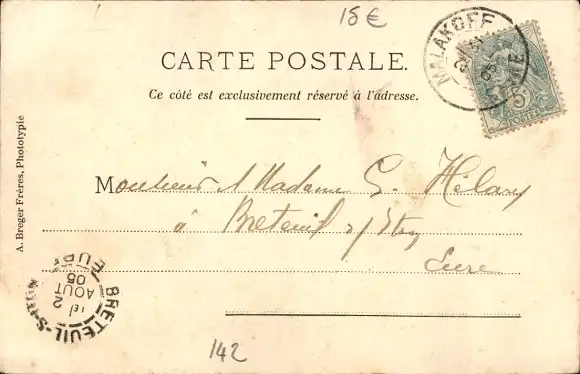 15 €
MALAKOFF
SEINE
5
POSTES
CARTE POSTALE.
Ce côté est exclusivement réservé à l'adresse.
Monsieur & Madame G. Hélary
à Breteuil s/ Iton
Eure
A. Breger Frères, Phototypie
BRETEUIL-S-ITON
EURE
2
AOUT
05
142